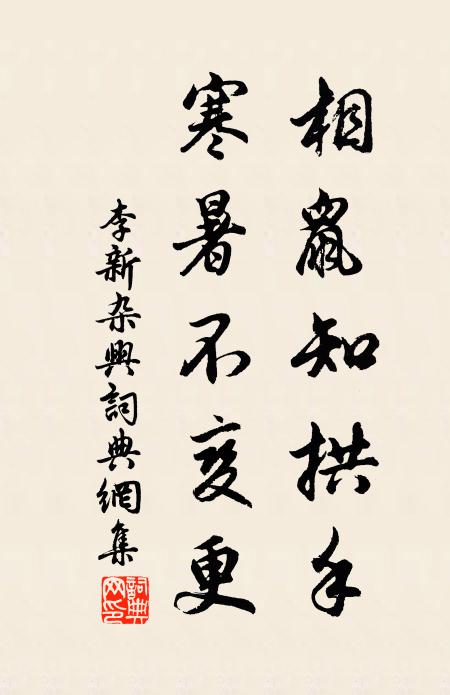 相鼠知拱手
寒暑不变更
李新杂興詞典網集
詞典网印